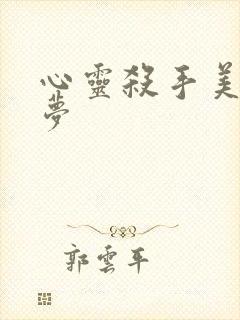 心靈殺手美
夢
郭雲平